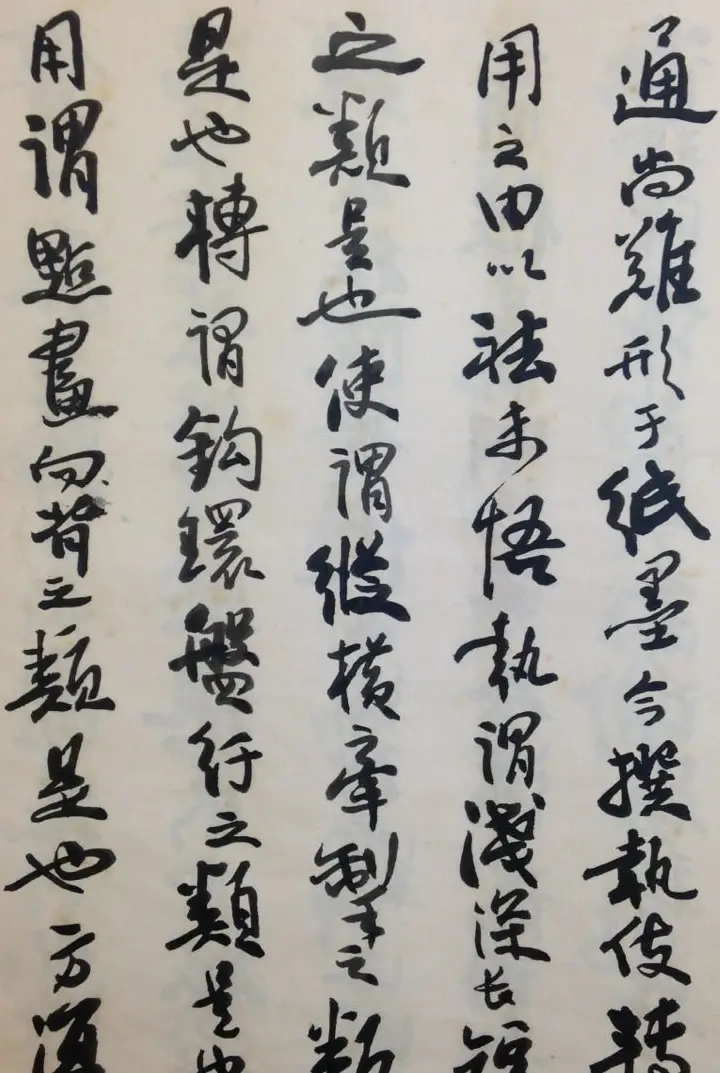 通尚難形于紙墨今撰執使轉
用之由以祛未悟執謂淺深長短
之類是也使謂縱橫牽掣之類
是也轉謂鈎環盤紆之類是也
用謂點畫向背之類是也方復